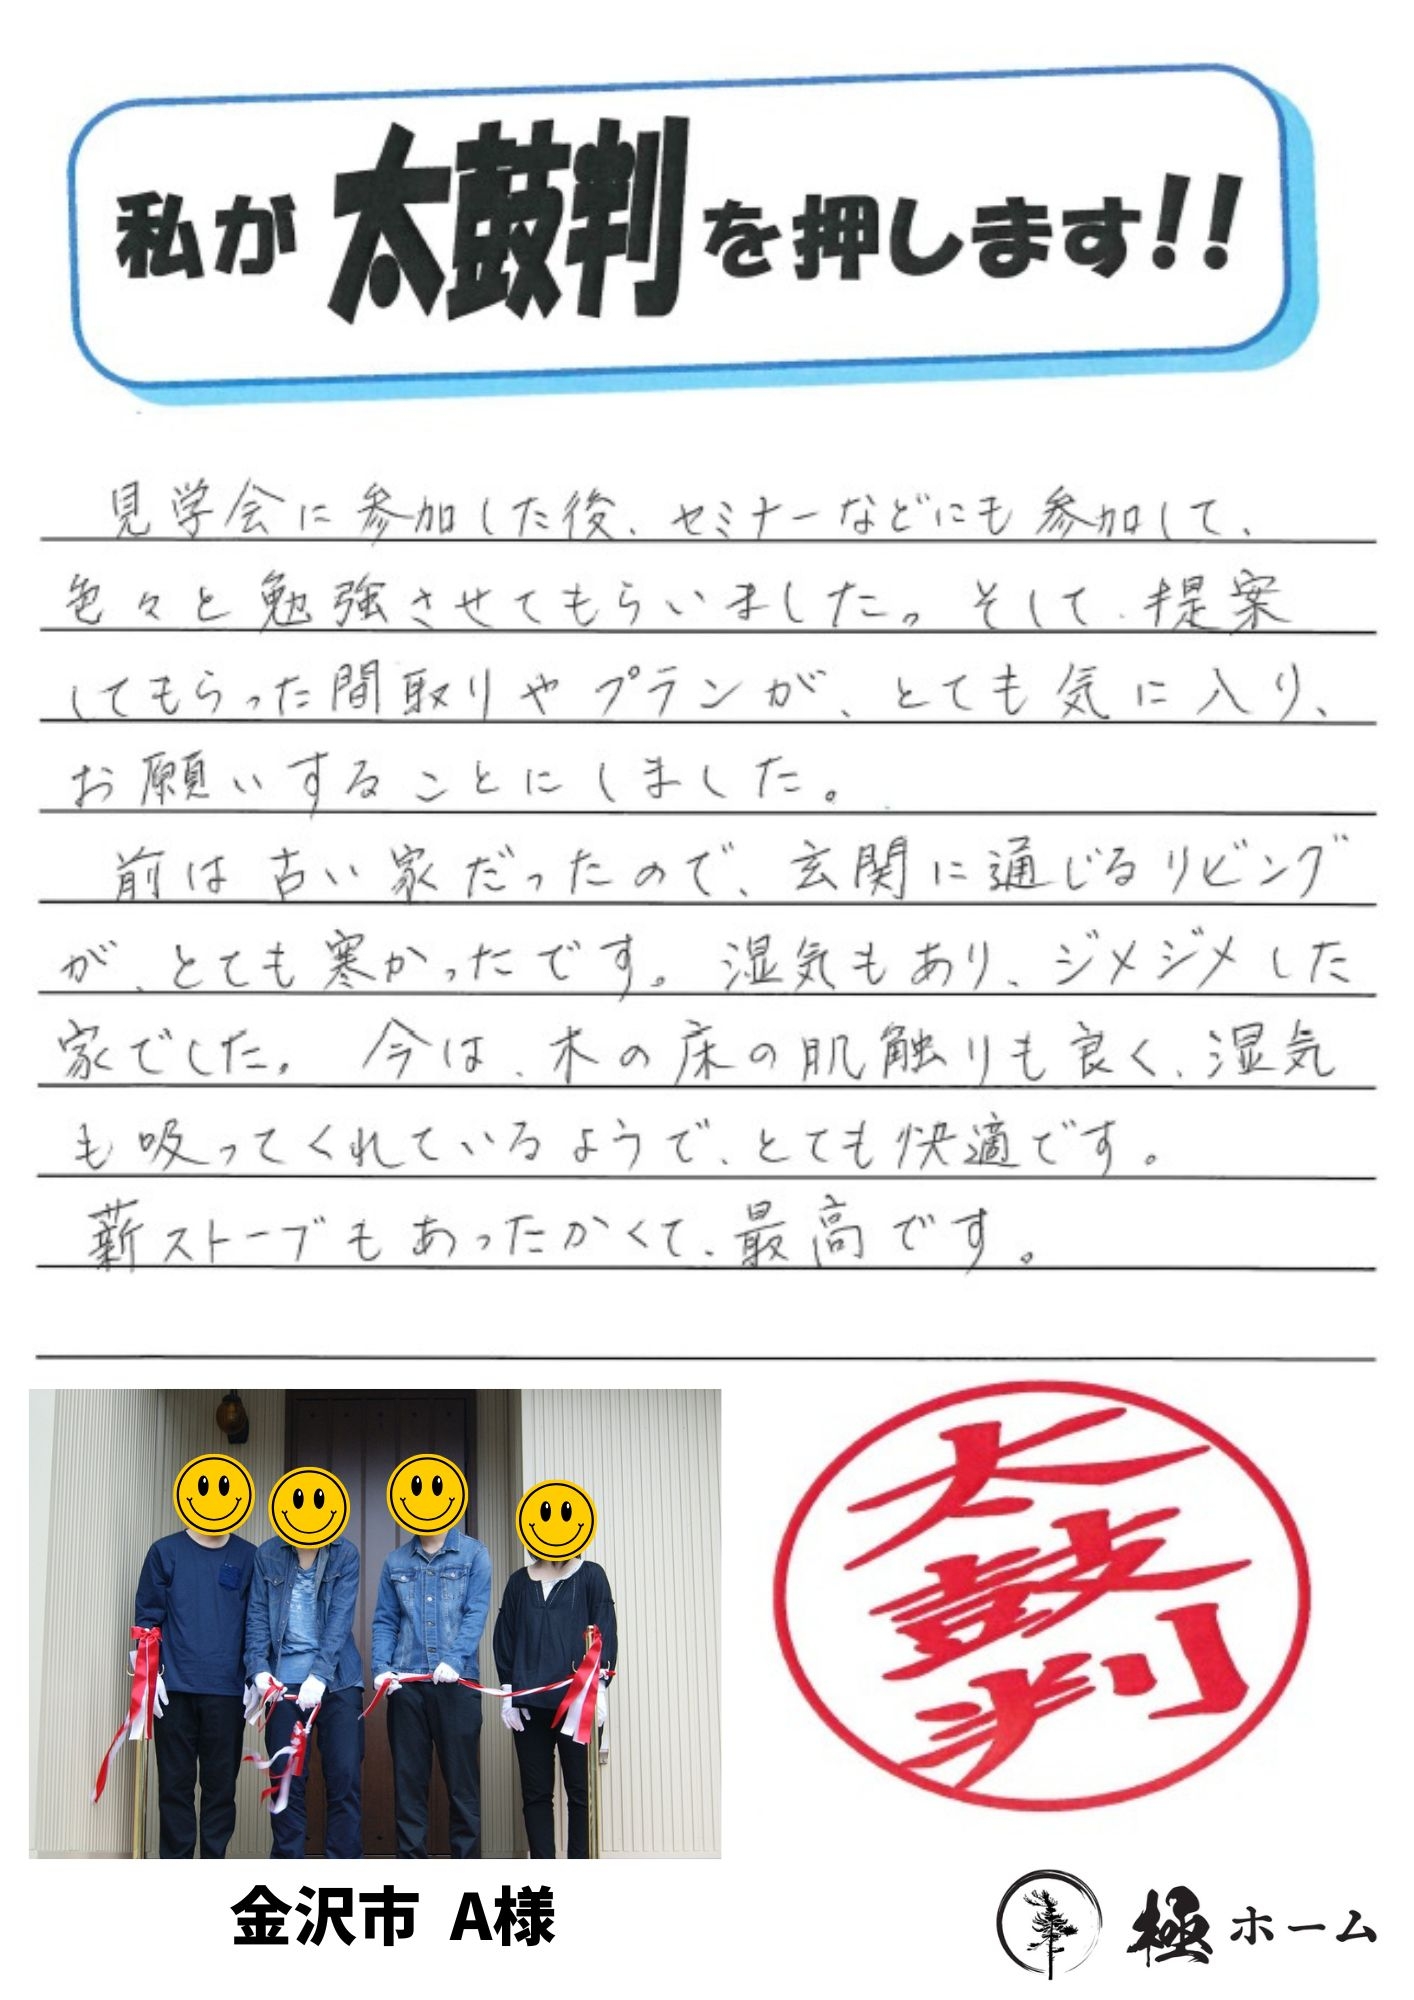 私が太鼓判を押します!!
見学会に参加した後、セミナーなどにも参加して、
色々と勉強させてもらいました。そして、提案
してもらった間取りやプランが、とても気に入り、
お願いすることにしました。
前は古い家だったので、玄関に通じるリビング
が、とても寒かったです。湿気もあり、ジメジメした
家でした。今は、木の床の肌触りも良く、湿気
も吸ってくれているようで、とても快適です。
薪ストーブもあったかくて、最高です。
太
鼓
判
金沢市 A様
極ホーム